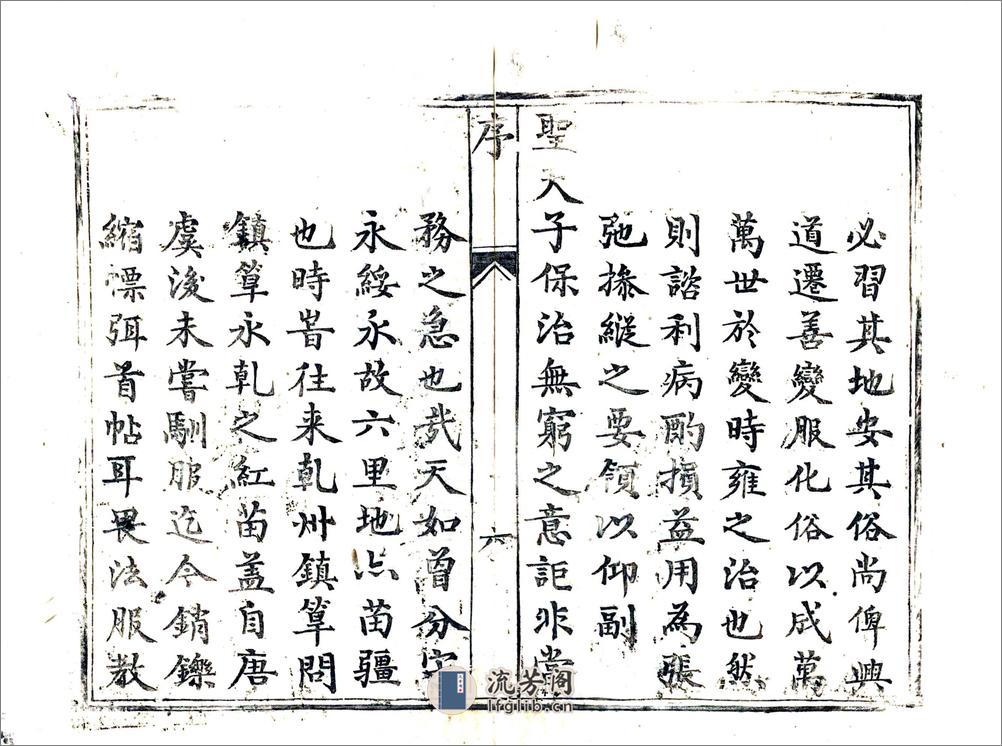 必習其地安其俗尚俾興
道遷善變服化俗以成萬
萬世於變時雍之治也然
則諮利病酌損益用為張
弛操縱之要領以仰副
聖天子保治無窮之意詎非當
序
六
務之急也哉天如曾分守
永綏永故六里地亦苗疆
也時嘗往来乾州鎮筸間
鎮筸永乾之紅苗蓋自唐
虞後未嘗馴服迄今銷鑠
縮慄弭首帖耳畏法服教
流芳阁
lfglib.cn